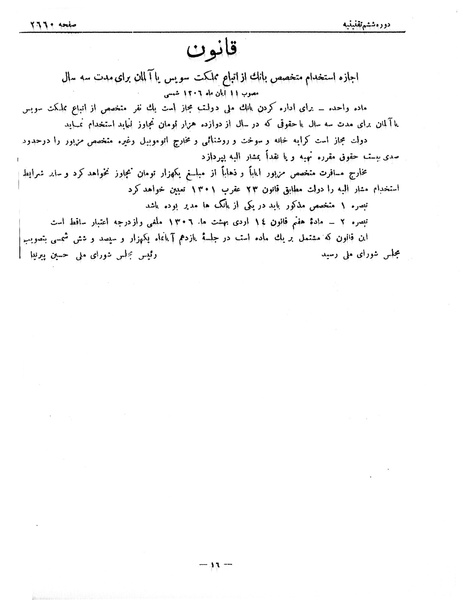 دوره ششم تقنینیه
صفحه ۲۶۶۰
قانون
اجازه استخدام متخصص بانك از اتباع مملکت سویس یا آلمان برای مدت سه سال
مصوب ۱۱ آبان ماه ۱۳۰۶ شمسی
ماده واحده – برای اداره کردن بانك ملی دولت مجاز است يك نفر متخصص از اتباع مملکت سویس
یا آلمان برای مدت سه سال با حقوقی که در سال از دوازده هزار تومان تجاوز ننماید استخدام نماید
دولت مجاز است کرایه خانه و سوخت و روشنائی و مخارج اتوموبیل وغیره متخصص مزبور را درحدود
صدی بیست حقوق مقرره تهیه و یا نقداً بمشار الیه بپردازد
مخارج مسافرت متخصص مزبور ایاباً و ذهاباً از مبلغ یکهزار تومان تجاوز نخواهد کرد و سایر شرایط
استخدام مشار الیه را دولت مطابق قانون ۲۳ عقرب ۱۳۰۱ تعیین خواهد کرد
تبصره ۱ متخصص مذکور باید در یکی از بانك ها مدیر بوده باشد
تبصره ۲ – مادهٔ هفتم قانون ۱۴ اردی بهشت ماه ۱۳۰۶ ملغی و از درجه اعتبار ساقط است
این قانون که مشتمل بر يك ماده است در جلسهٔ یازدهم آبانماه یکهزار و سیصد و شش شمسی بتصویب
مجلس شورای ملی رسید
رئیس مجلس شورای ملی حسین پیرنیا
– ۱۶ –